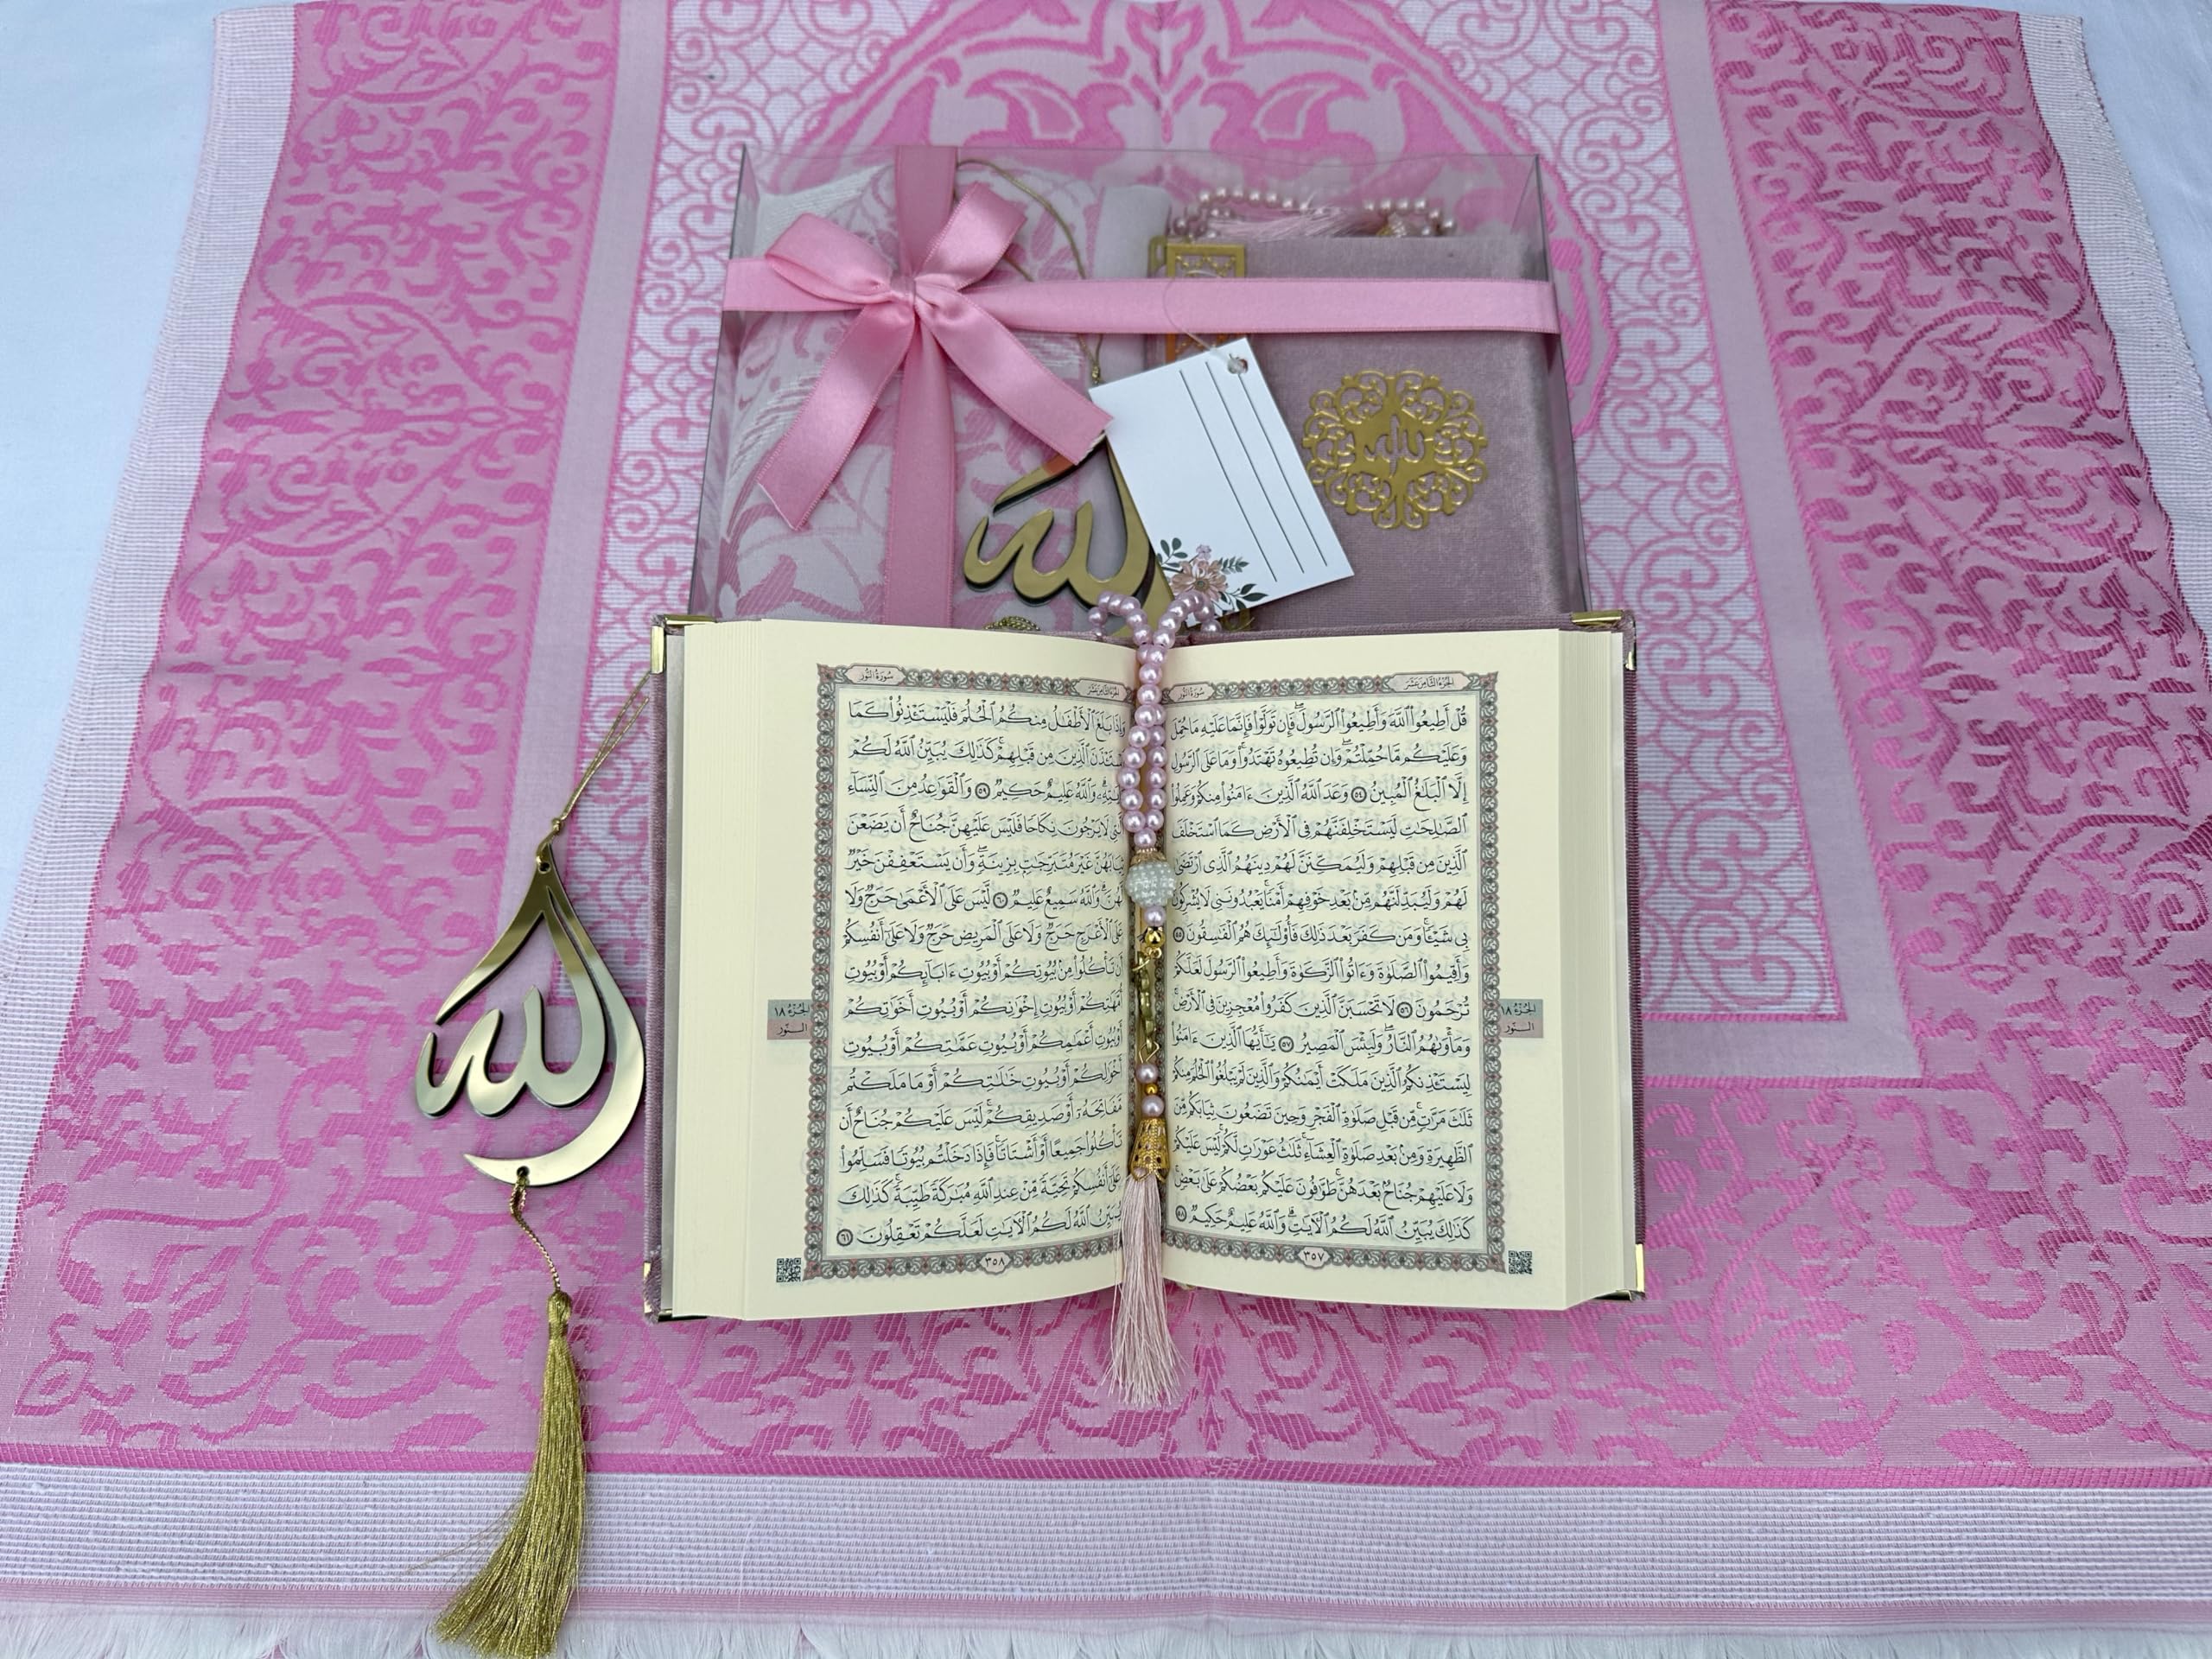 الله
الله
الله
الجُزْءُ الثَّامِنَ عَشَرَ
سُورَةُ النُّورِ
قُلْ أَطِيعُوا۟ ٱللَّهَ وَأَطِيعُوا۟ ٱلرَّسُولَ ۖ فَإِن تَوَلَّوْا۟ فَإِنَّمَا عَلَيْهِ مَا حُمِّلَ
وَعَلَيْكُم مَّا حُمِّلْتُمْ ۖ وَإِن تُطِيعُوهُ تَهْتَدُوا۟ ۚ وَمَا عَلَى ٱلرَّسُولِ
إِلَّا ٱلْبَلَٰغُ ٱلْمُبِينُ ٥٤ وَعَدَ ٱللَّهُ ٱلَّذِينَ ءَامَنُوا۟ مِنكُمْ وَعَمِلُوا۟
ٱلصَّٰلِحَٰتِ لَيَسْتَخْلِفَنَّهُمْ فِى ٱلْأَرْضِ كَمَا ٱسْتَخْلَفَ
ٱلَّذِينَ مِن قَبْلِهِمْ وَلَيُمَكِّنَنَّ لَهُمْ دِينَهُمُ ٱلَّذِى ٱرْتَضَىٰ
لَهُمْ وَلَيُبَدِّلَنَّهُم مِّنۢ بَعْدِ خَوْفِهِمْ أَمْنًا ۚ يَعْبُدُونَنِى لَا يُشْرِكُونَ
بِى شَيْـًٔا ۚ وَمَن كَفَرَ بَعْدَ ذَٰلِكَ فَأُو۟لَٰٓئِكَ هُمُ ٱلْفَٰسِقُونَ ٥٥
وَأَقِيمُوا۟ ٱلصَّلَوٰةَ وَءَاتُوا۟ ٱلزَّكَوٰةَ وَأَطِيعُوا۟ ٱلرَّسُولَ لَعَلَّكُمْ
تُرْحَمُونَ ٥٦ لَا تَحْسَبَنَّ ٱلَّذِينَ كَفَرُوا۟ مُعْجِزِينَ فِى ٱلْأَرْضِ ۚ
وَمَأْوَىٰهُمُ ٱلنَّارُ ۖ وَلَبِئْسَ ٱلْمَصِيرُ ٥٧ يَٰٓأَيُّهَا ٱلَّذِينَ ءَامَنُوا۟
لِيَسْتَـْٔذِنكُمُ ٱلَّذِينَ مَلَكَتْ أَيْمَٰنُكُمْ وَٱلَّذِينَ لَمْ يَبْلُغُوا۟ ٱلْحُلُمَ مِنكُمْ
ثَلَٰثَ مَرَّٰتٍ ۚ مِّن قَبْلِ صَلَوٰةِ ٱلْفَجْرِ وَحِينَ تَضَعُونَ ثِيَابَكُم مِّنَ
ٱلظَّهِيرَةِ وَمِنۢ بَعْدِ صَلَوٰةِ ٱلْعِشَآءِ ۚ ثَلَٰثُ عَوْرَٰتٍ لَّكُمْ ۚ لَيْسَ عَلَيْكُمْ
وَلَا عَلَيْهِمْ جُنَاحٌۢ بَعْدَهُنَّ ۚ طَوَّٰفُونَ عَلَيْكُم بَعْضُكُمْ عَلَىٰ بَعْضٍ ۚ
كَذَٰلِكَ يُبَيِّنُ ٱللَّهُ لَكُمُ ٱلْءَايَٰتِ ۗ وَٱللَّهُ عَلِيمٌ حَكِيمٌ ٥٨
٣٥٧
الجُزْءُ ١٨
النُّور
الجُزْءُ الثَّامِنَ عَشَرَ
سُورَةُ النُّورِ
وَإِذَا بَلَغَ ٱلْأَطْفَٰلُ مِنكُمُ ٱلْحُلُمَ فَلْيَسْتَـْٔذِنُوا۟ كَمَا
ٱلَّذِينَ مِن قَبْلِهِمْ ۚ كَذَٰلِكَ يُبَيِّنُ ٱللَّهُ لَكُمْ
وَٱللَّهُ عَلِيمٌ حَكِيمٌ ٥٩ وَٱلْقَوَٰعِدُ مِنَ ٱلنِّسَآءِ
لَا يَرْجُونَ نِكَاحًا فَلَيْسَ عَلَيْهِنَّ جُنَاحٌ أَن يَضَعْنَ
غَيْرَ مُتَبَرِّجَٰتٍۭ بِزِينَةٍ ۖ وَأَن يَسْتَعْفِفْنَ خَيْرٌ
لَّهُنَّ ۗ وَٱللَّهُ سَمِيعٌ عَلِيمٌ ٦٠ لَّيْسَ عَلَى ٱلْأَعْمَىٰ حَرَجٌ وَلَا
عَلَى ٱلْأَعْرَجِ حَرَجٌ وَلَا عَلَى ٱلْمَرِيضِ حَرَجٌ وَلَا عَلَىٰٓ أَنفُسِكُمْ
أَن تَأْكُلُوا۟ مِنۢ بُيُوتِكُمْ أَوْ بُيُوتِ ءَابَآئِكُمْ أَوْ بُيُوتِ
أُمَّهَٰتِكُمْ أَوْ بُيُوتِ إِخْوَٰنِكُمْ أَوْ بُيُوتِ أَخَوَٰتِكُمْ
أَوْ بُيُوتِ أَعْمَٰمِكُمْ أَوْ بُيُوتِ عَمَّٰتِكُمْ أَوْ بُيُوتِ
أَخْوَٰلِكُمْ أَوْ بُيُوتِ خَٰلَٰتِكُمْ أَوْ مَا مَلَكْتُم
مَّفَاتِحَهُۥٓ أَوْ صَدِيقِكُمْ ۚ لَيْسَ عَلَيْكُمْ جُنَاحٌ أَن
تَأْكُلُوا۟ جَمِيعًا أَوْ أَشْتَاتًا ۚ فَإِذَا دَخَلْتُم بُيُوتًا فَسَلِّمُوا۟
عَلَىٰٓ أَنفُسِكُمْ تَحِيَّةً مِّنْ عِندِ ٱللَّهِ مُبَٰرَكَةً طَيِّبَةً ۚ كَذَٰلِكَ
يُبَيِّنُ ٱللَّهُ لَكُمُ ٱلْءَايَٰتِ لَعَلَّكُمْ تَعْقِلُونَ ٦١
٣٥٨
الجُزْءُ ١٨
النُّور